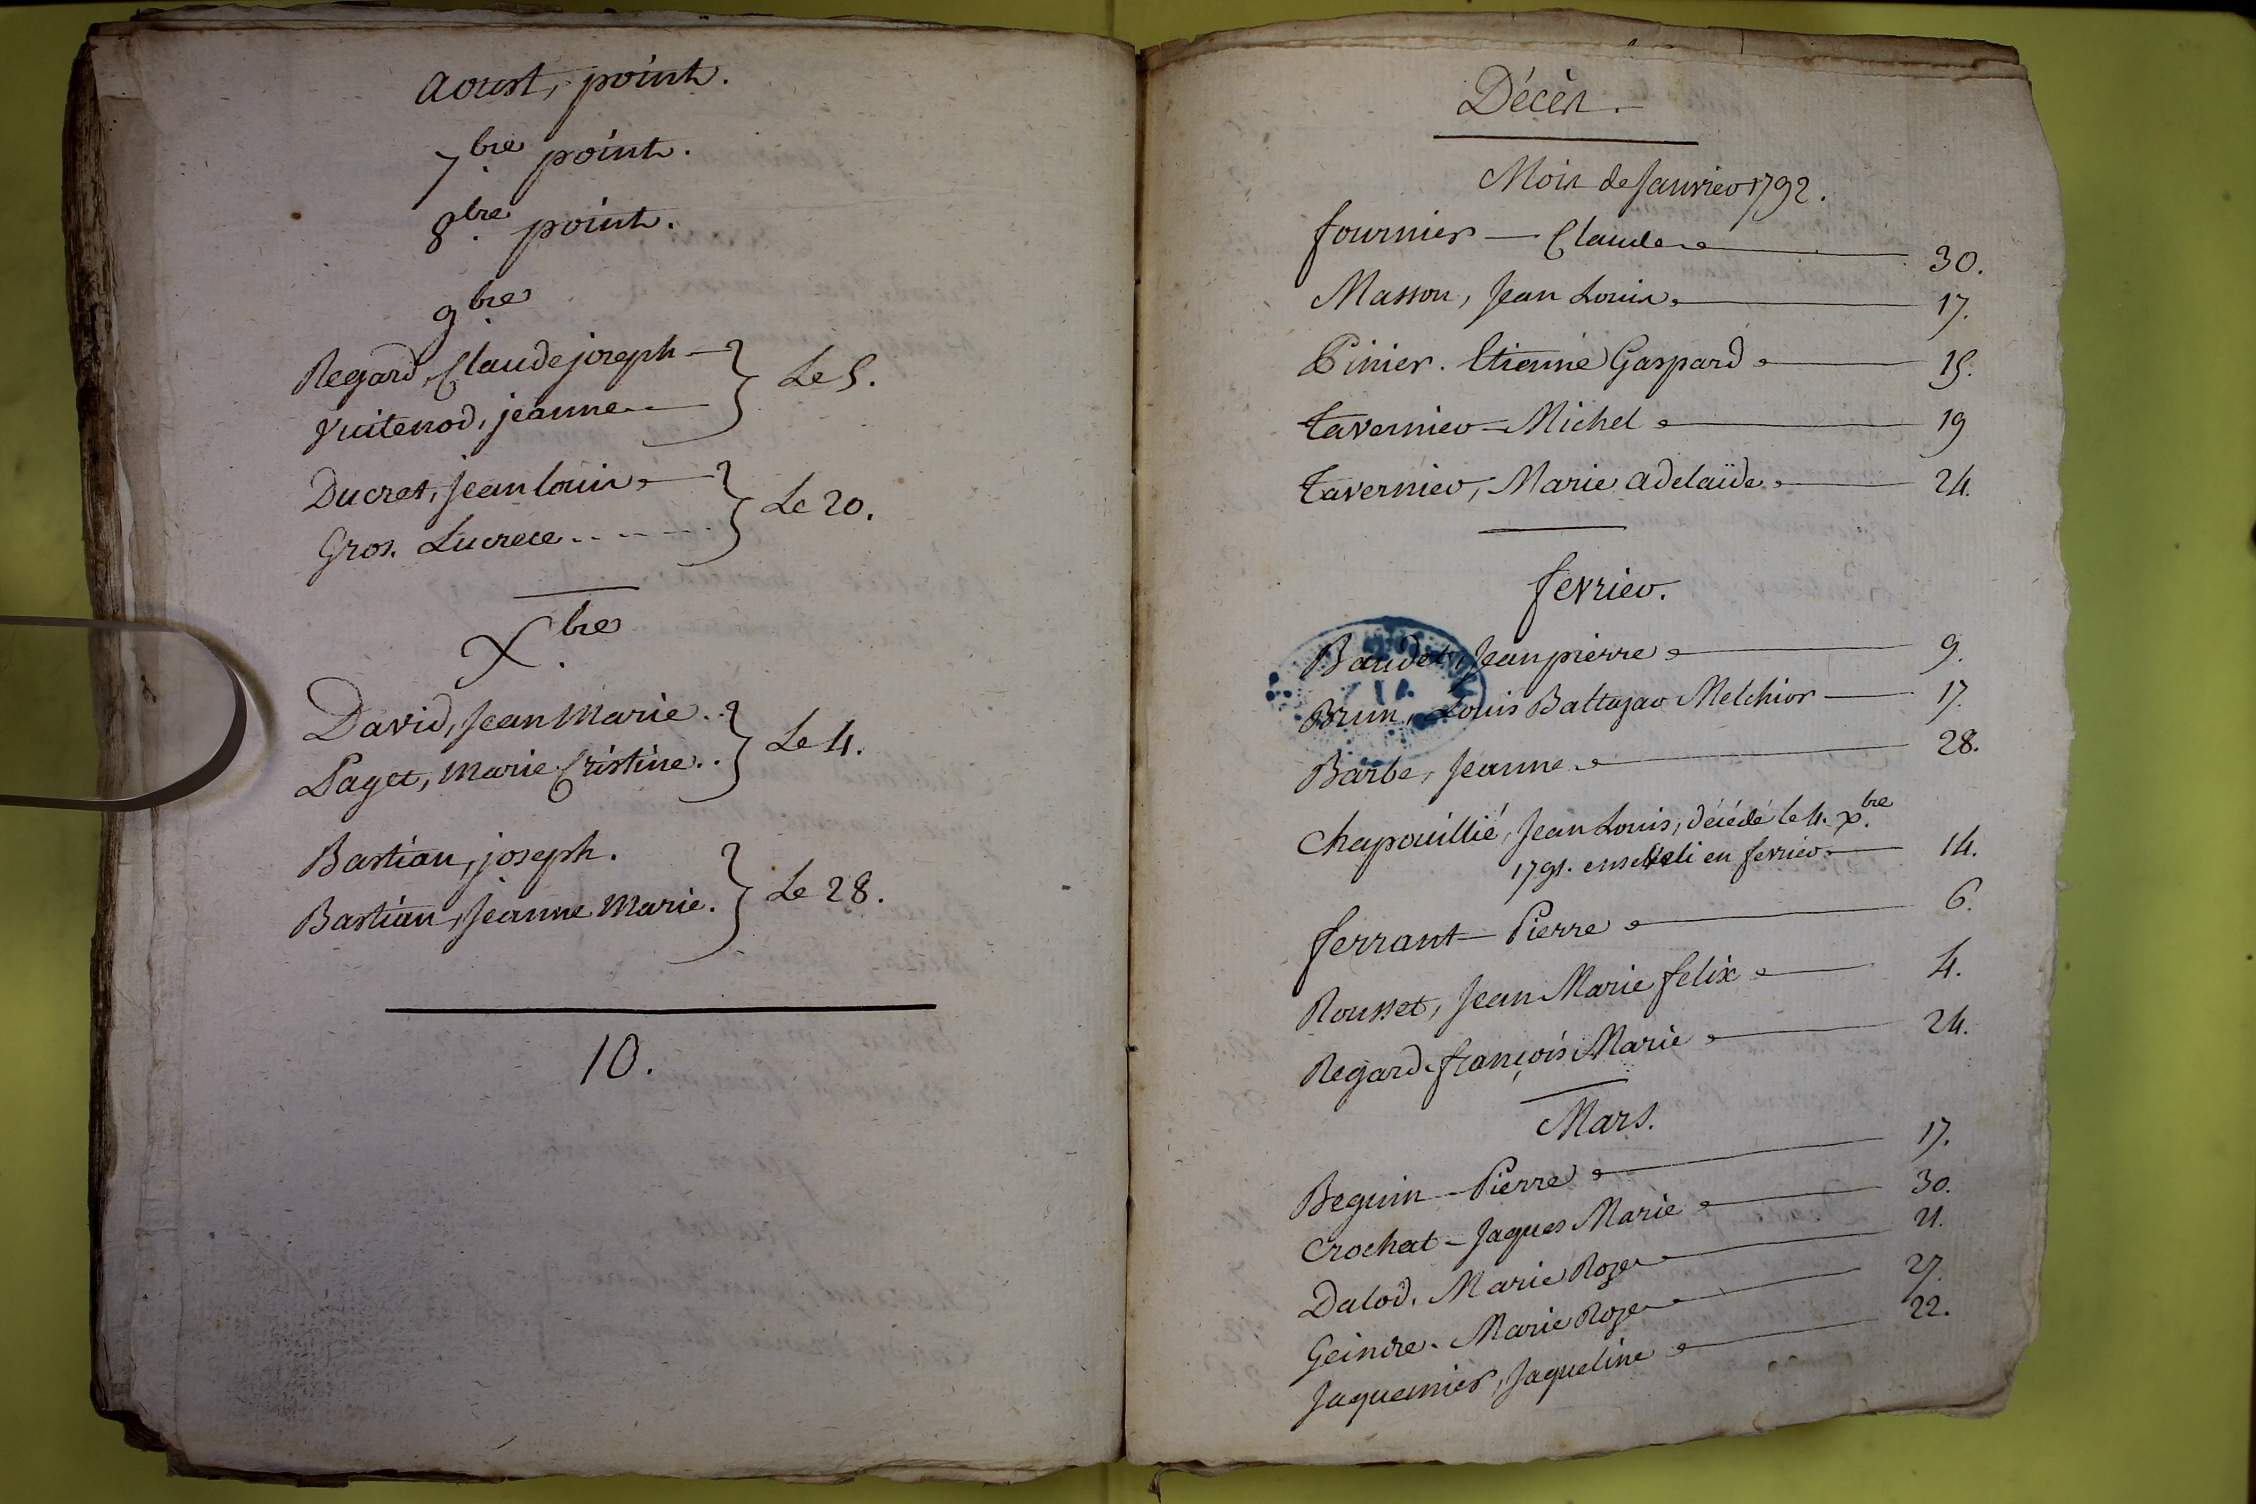 Aoust, point.
7bre point.
8bre point.
9bre
Regard, Claude joseph
Vuitenod, jeanne
Le 5.
Ducret, Jean louis
Gros. Lucrece
Le 20.
Xbre
David, Jean Marie
Paget, Marie Cristine
Le 4.
Bastian, joseph.
Bastian, Jeanne Marie.
Le 28.
10.
Décès.
Mois de Janvier 1792.
fournier Claude 30.
Masson, Jean Louis 17.
Pinier. Etienne Gaspard 15.
Tavernier Michel 19
Tavernier, Marie adelaïde 24.
fevrier.
Baudet, Jean pierre 9.
Brun, Louis Baltazar Melchior 17.
Barbe, Jeanne 28.
Chapouillié, Jean Louis, décédé le 4. Xbre
1791. enseveli en fevrier 14.
ferrant Pierre 6.
Rousset, Jean Marie felix 4.
Regard. françois Marie 24.
Mars.
Beguin Pierre 17.
Crochat Jaques Marie 30.
Dalod. Marie Roze 21.
Geindre. Marie Roze 27.
Jaquemier, Jaqueline 22.